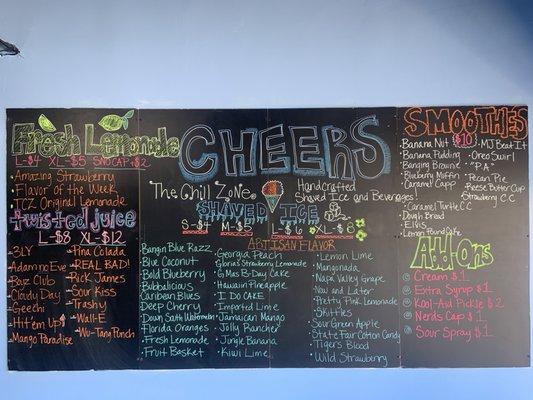 Fresh Lemonade
L-$4 XL-$5 SNOCAP-$2
Amazing Strawberry
Flavor of the Week
TCZ Original Lemonade
Twisted Juice
L-$8 XL-$12
3LY
Adam no Eve
Boyz Club
Cloudy Day
Geechi
Hit em Up!
Mango Paradise
Pina Colada
REAL BAD!
Rick James
Sour Kiss
Trashy
Wall-E
Wu-Tang Punch
CHEERS
The Chill Zone
Handcrafted
Shaved Ice and Beverages!
SHAVED ICE
S-$4 M-$5 L-$6 XL-$8
ARTISAN FLAVOR
Bangin Blue Razz
Blue Coconut
Bold Blueberry
Bubbalicious
Cariban Blues
Deep Cherry
Down South Watermelon
Florida Oranges
Fresh Lemonade
Fruit Basket
Georgia Peach
Gloria's Strawberry Lemonade
G Mas B-Day Cake
Hawaiin Pineapple
I DO CAKE
Imported Lime
Jamaican Mango
Jolly Rancher
Jungle Banana
Kiwi Lime
Lemon Lime
Mangonada
Napa Valley Grape
Now and Later
Pretty Pink Lemonade
Skittles
Sour Green Apple
State Fair Cotton Candy
Tigers Blood
Wild Strawberry
SMOOTHES
$10
Banana Nut
Banana Pudding
Banging Brownie
Blueberry Muffin
Caramel Capp
Caramel Turtle C.C
Dough Bread
ELVIS
Lemon Pound Cake
MJ Beat It
Oreo Swirl
"PA"
Pecan Pie
Reese Butter Cup
Strawberry C.C
Add-Ons
Cream $1
Extra Syrup $1
Kool-Aid Pickle $2
Nerds Cap $1
Sour Spray $1